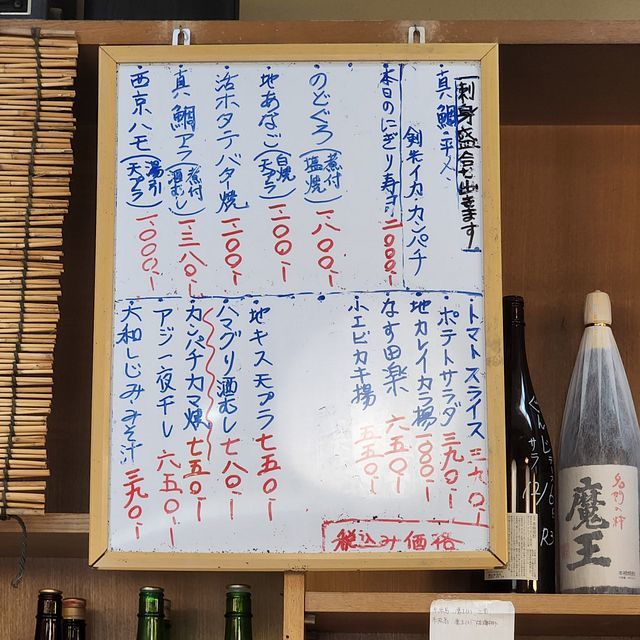 刺身盛合せ出来ます
真鯛平人
剣先イカ・カンパチ
本日のにぎり寿司 二〇〇〇、
のどぐろ(煮付 塩焼) 一、八〇〇、
地あなご(白焼 天プラ) 一、一〇〇、
活ホタテバター焼 一、二〇〇、
真鯛アラ(煮付 酒むし) 一、三八〇、
西京ハモ(湯引 天プラ) 一、〇〇〇、
トマトスライス 三九〇、
ポテトサラダ 三九〇、
地カレイカラ揚 一〇〇〇、
なす田楽 六五〇、
小エビカキ揚 五五〇、
地キス天プラ 七五〇、
ハマグリ酒むし 七八〇、
カンパチカマ焼 七五〇、
アジ一夜干し 六五〇、
大和しじみ・みそ汁 三九〇、
税込み価格
名門の粋
魔王